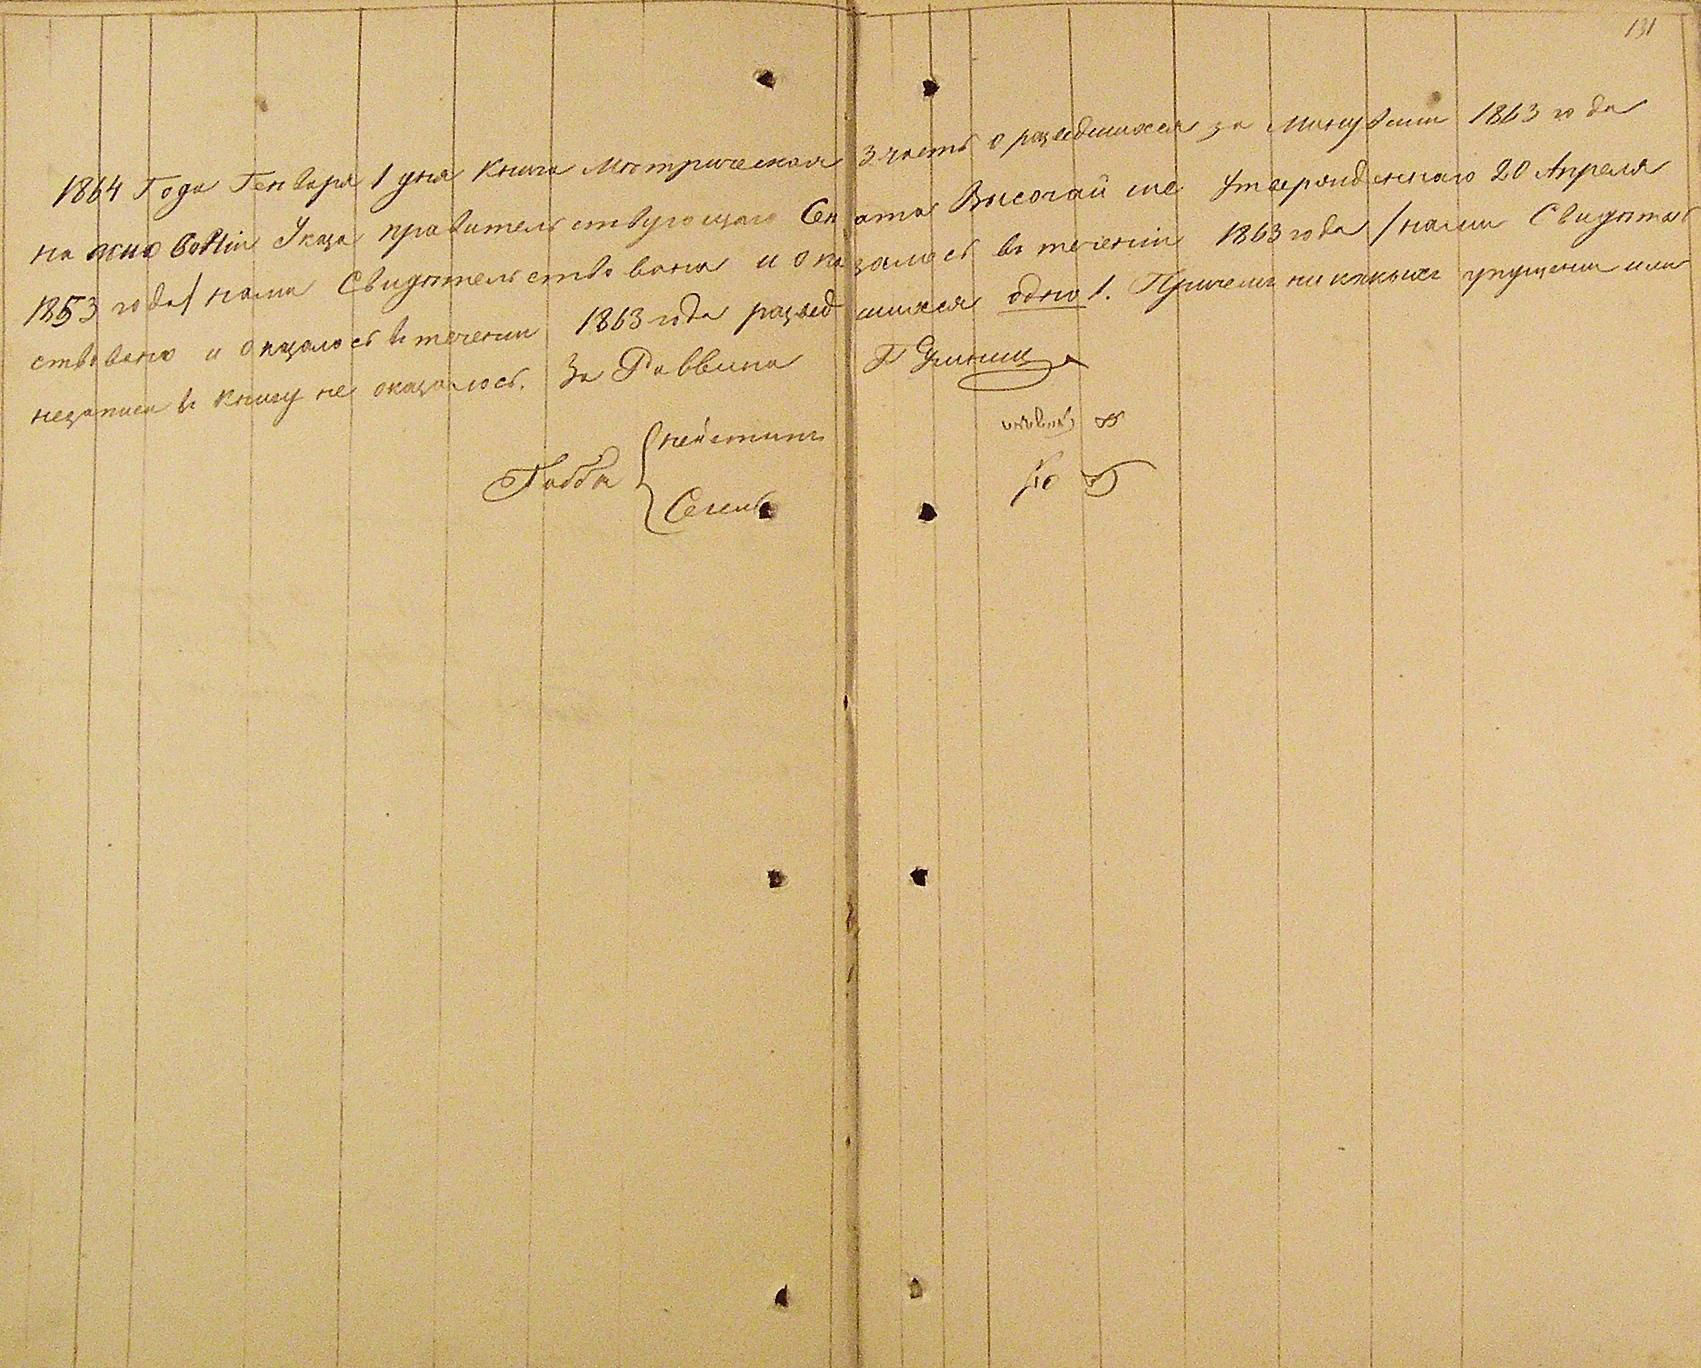 131
1864 Года Генваря 1 дня Книга Метрическая 3 часть о разведшихся за Минувши 1863 года
на основании Указа правительствующаго Сената Высочайше утвержденнаго 20 Апреля
1853 года / нами Свидетельствована и оказалось в течении 1863 года / нами Свидетель
ствовано и оказалось в течении 1863 года развед шихся одно 1. Причем никаких упущении или
незаписи в книгу не оказалось. За Раввина
Габба
Сегенъ